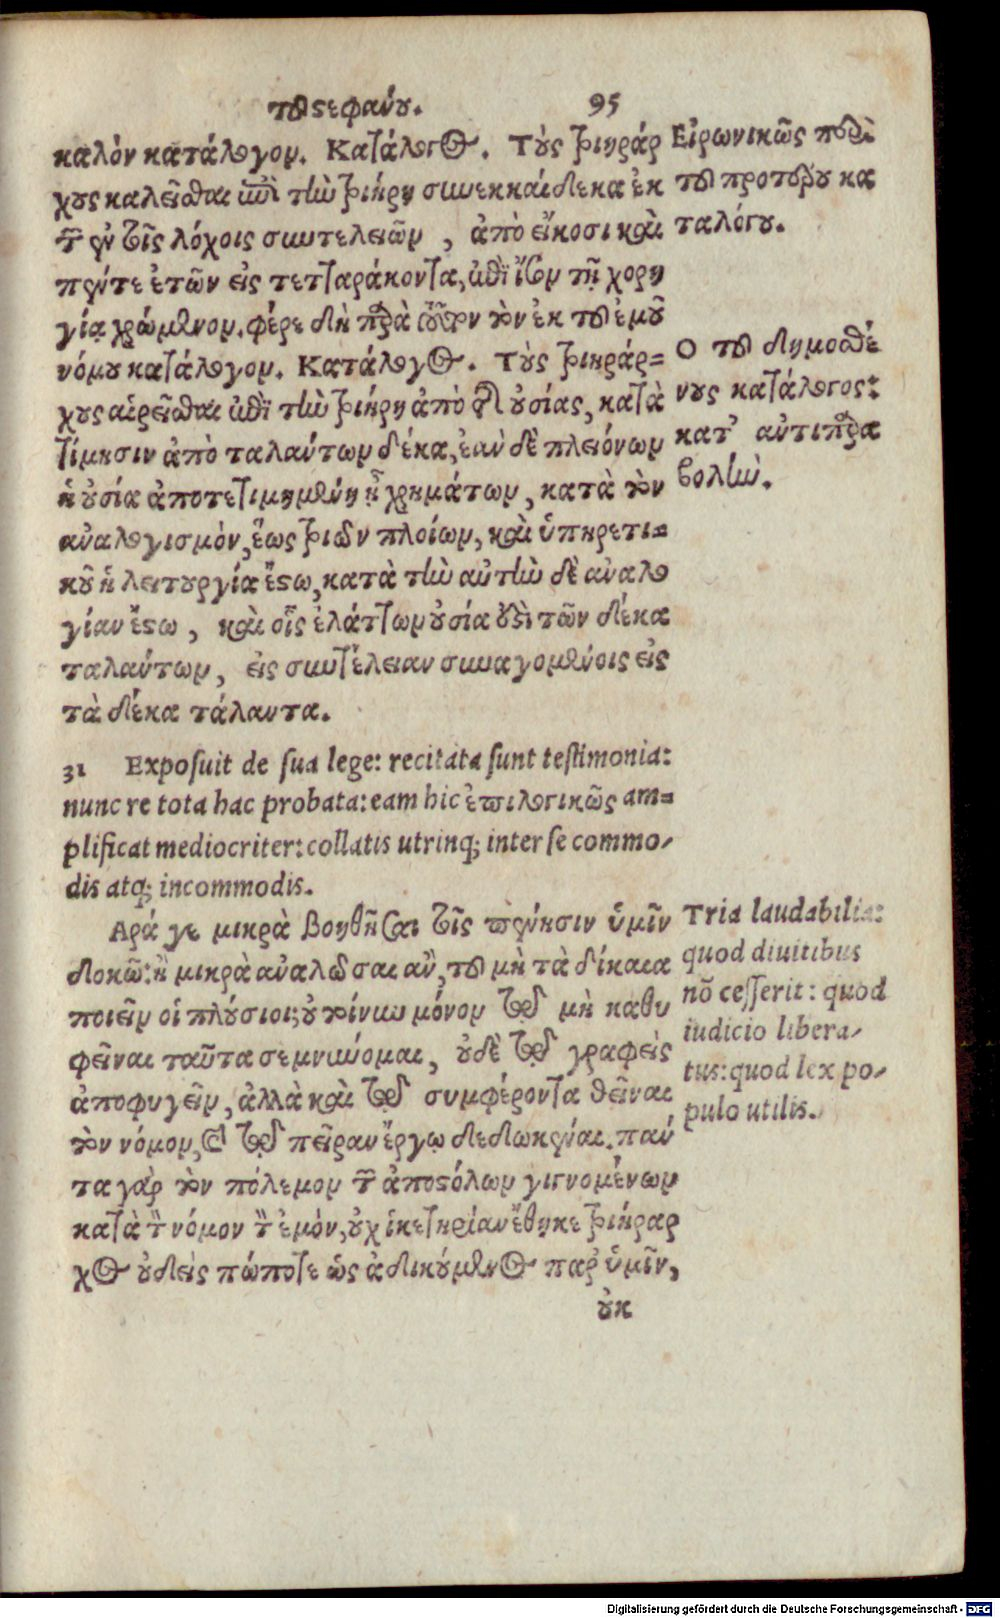 τοῦ στεφάνου. 95
καλὸν κατάλογον. Κατάλογος. Τοὺς τριηράρ
χους καλεῖσθαι ἐπὶ τὴν τριήρη συνεκκαίδεκα ἐκ
τῶν ἐν τοῖς λόχοις συντελειῶν, ἀπὸ εἴκοσι καὶ
πέντε ἐτῶν εἰς τετταράκοντα, ἐπὶ ἴσον τῇ χορη
γίᾳ χρώμενον. φέρε δὴ παρὰ τοῦτον τὸν ἐκ τοῦ ἐμοῦ
νόμου κατάλογον. Κατάλογος. Τοὺς τριηράρ=
χους αἱρεῖσθαι ἐπὶ τὴν τριήρη ἀπὸ τῆς οὐσίας, κατὰ
τίμησιν ἀπὸ ταλάντων δέκα, ἐὰν δὲ πλειόνων
ἡ οὐσία ἀποτετιμημένη ᾖ χρημάτων, κατὰ τὸν
ἀναλογισμὸν, ἕως τριῶν πλοίων, καὶ ὑπηρετι=
κοῦ ἡ λειτουργία ἔστω, κατὰ τὴν αὐτὴν δὲ ἀναλο
γίαν ἔστω, καὶ οἷς ἐλάττων οὐσία ἐστὶ τῶν δέκα
ταλάντων, εἰς συντέλειαν συναγομένοις εἰς
τὰ δέκα τάλαντα.
Εἰρωνικῶς περὶ
τοῦ προτέρου κα
ταλόγου.
Ο τοῦ δημοσθέ
νους κατάλογος:
κατ’ ἀντιπαρα
βολήν.
31 Exposuit de sua lege: recitata sunt testimonia:
nunc re tota hac probata: eam hic ἐπιλογικῶς am=
plificat mediocriter: collatis utrinq; inter se commo-
dis atq; incommodis.
Αρά γε μικρὰ βοηθῆσαι τοῖς πένησιν ὑμῖν
δοκῶ: ἢ μικρὰ ἀναλῶσαι ἂν, τοῦ μὴ τὰ δίκαια
ποιεῖν οἱ πλούσιοι; οὐ τοίνυν μόνον τῷ μὴ καθυ
φεῖναι ταῦτα σεμνύνομαι, οὐδὲ τῷ γραφεὶς
ἀποφυγεῖν, ἀλλὰ καὶ τῷ συμφέροντα θεῖναι
τὸν νόμον, καὶ τῷ πεῖραν ἔργῳ δεδωκέναι. πάν
τα γὰρ τὸν πόλεμον τῶν ἀποστόλων γιγνομένων
κατὰ τὸν νόμον τὸν ἐμὸν, οὐχ ἱκετηρίαν ἔθηκε τριήραρ
χος οὐδεὶς πώποτε ὡς ἀδικούμενος παρ’ ὑμῖν,
οὐκ
Tria laudabilia:
quod diuitibus
nõ cesserit: quod
iudicio libera-
tus: quod lex po-
pulo utilis.
Digitalisierung gefördert durch die Deutsche Forschungsgemeinschaft - DFG